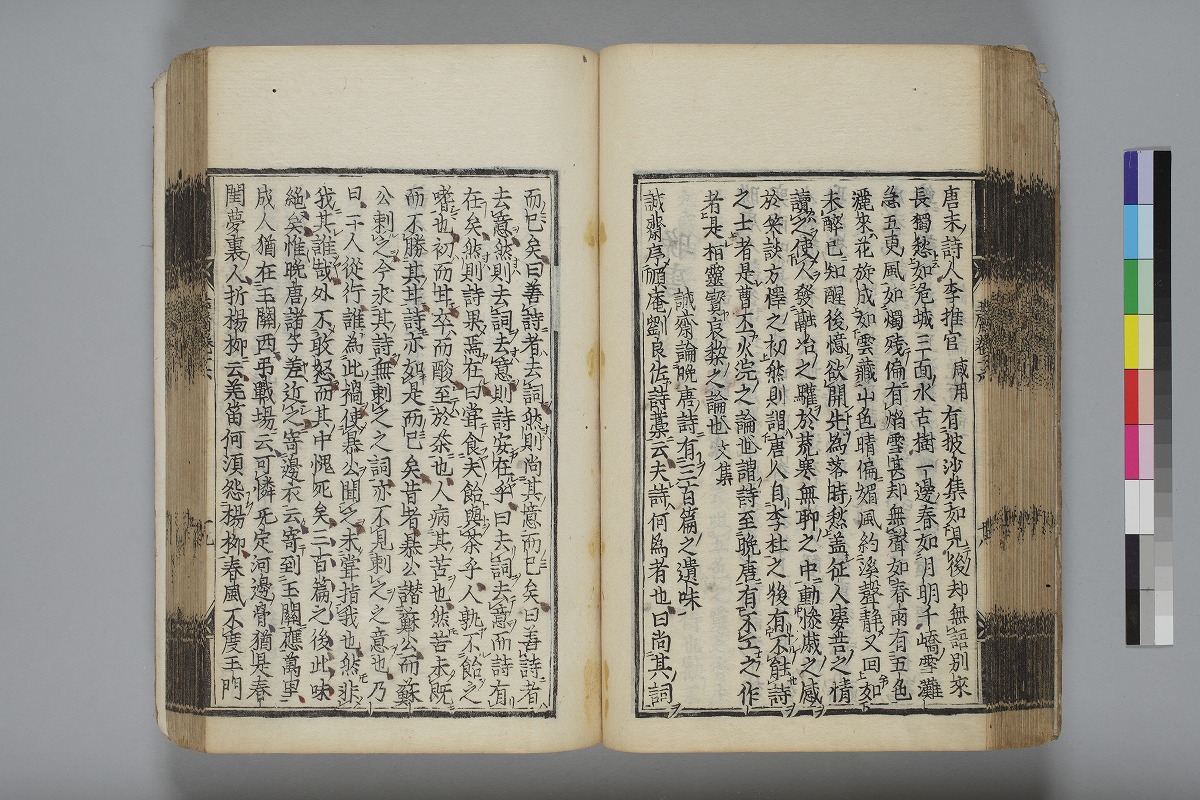 唐末詩人李推官咸用有披沙集如見後却無語別來
長獨愁如危城三面水古樹一邊春如月明千嶠雪灘
急五更風如燭殘偏有焰雪甚却無聲如春雨有五色
灑來花旋成如雲藏山色晴偏媚風約溪聲靜又回如
未醉已知醒後憶欲開先為落時愁盖征人凄苦之情
讀之使人發融冶之驩於荒寒無聊之中動慘戚之感
於笑談方懌之初然則謂唐人自李杜之後有不能詩
之士者是曹丕火浣之論也謂詩至晩唐有不工之作
者是桓靈寶哀梨之論也文集
誠齋論晩唐詩有三百篇之遺味
誠齋序頤庵劉良佐詩藁云夫詩何為者也曰尚其詞
而已矣曰善詩者去詞然則尚其意而已矣曰善詩者
去意然則去詞去意則詩安在乎曰去詞去意而詩有
在矣然則詩果焉在曰甞食夫飴與荼乎人孰不飴之
嗜也初而甘卒而酸至於荼也人病其苦也然苦未既
而不勝其甘詩亦如是而已矣昔者暴公譖蘇公而蘇
公刺之今求其詩無刺之之詞亦不見刺之之意也乃
曰二人從行誰為此禍使暴公聞之未甞指我也然非
我其誰哉外不敢怒而其中愧死矣三百篇之後此味
絶矣惟晩唐諸子差近之寄邊衣云寄到玉關應萬里
成人猶在玉關西弔戰場云可憐无定河邊骨猶是春
閨夢裏人折楊柳云羌笛何須怨楊柳春風不度玉門